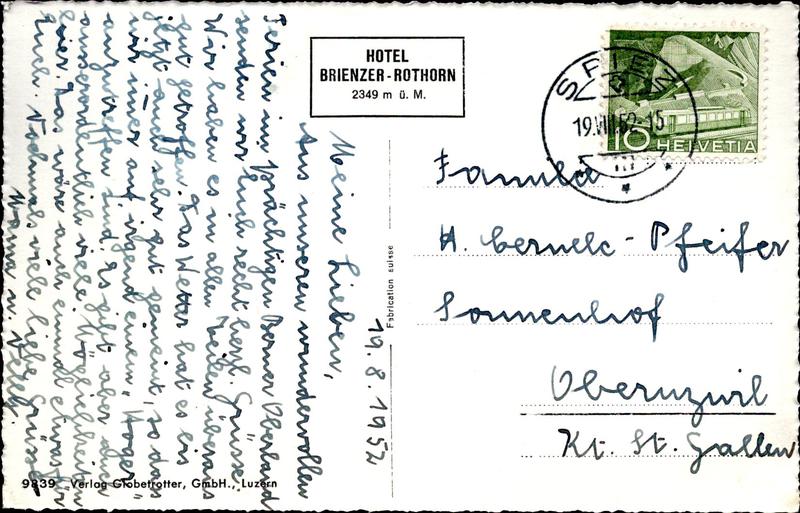 HOTEL
BRIENZER-ROTHORN
2349 m ü. M.
SPIEZ
19.VIII.52-15
10 HELVETIA
19.8.1952
Meine Lieben,
Aus unseren wundervollen
Ferien im prächtigen Berner Oberland
senden wir Euch recht herzl. Grüsse.
Wir haben es in allen Teilen überaus
gut getroffen. Das Wetter hat es bis
jetzt auch sehr gut gemeint, so dass
wir immer auf irgend einem "Hoger"
anzutreffen sind. Es gibt aber auch
ausserordentlich viele Möglichkeiten
hier. Das wäre auch einmal etwas für
Euch. Nochmals viele liebe Grüsse
Fabrication suisse
Familie
H. - Pfeifer
Sonnenhof
Oberuzwil
Kt. St. Gallen
9839 Verlag Globetrotter, GmbH., Luzern